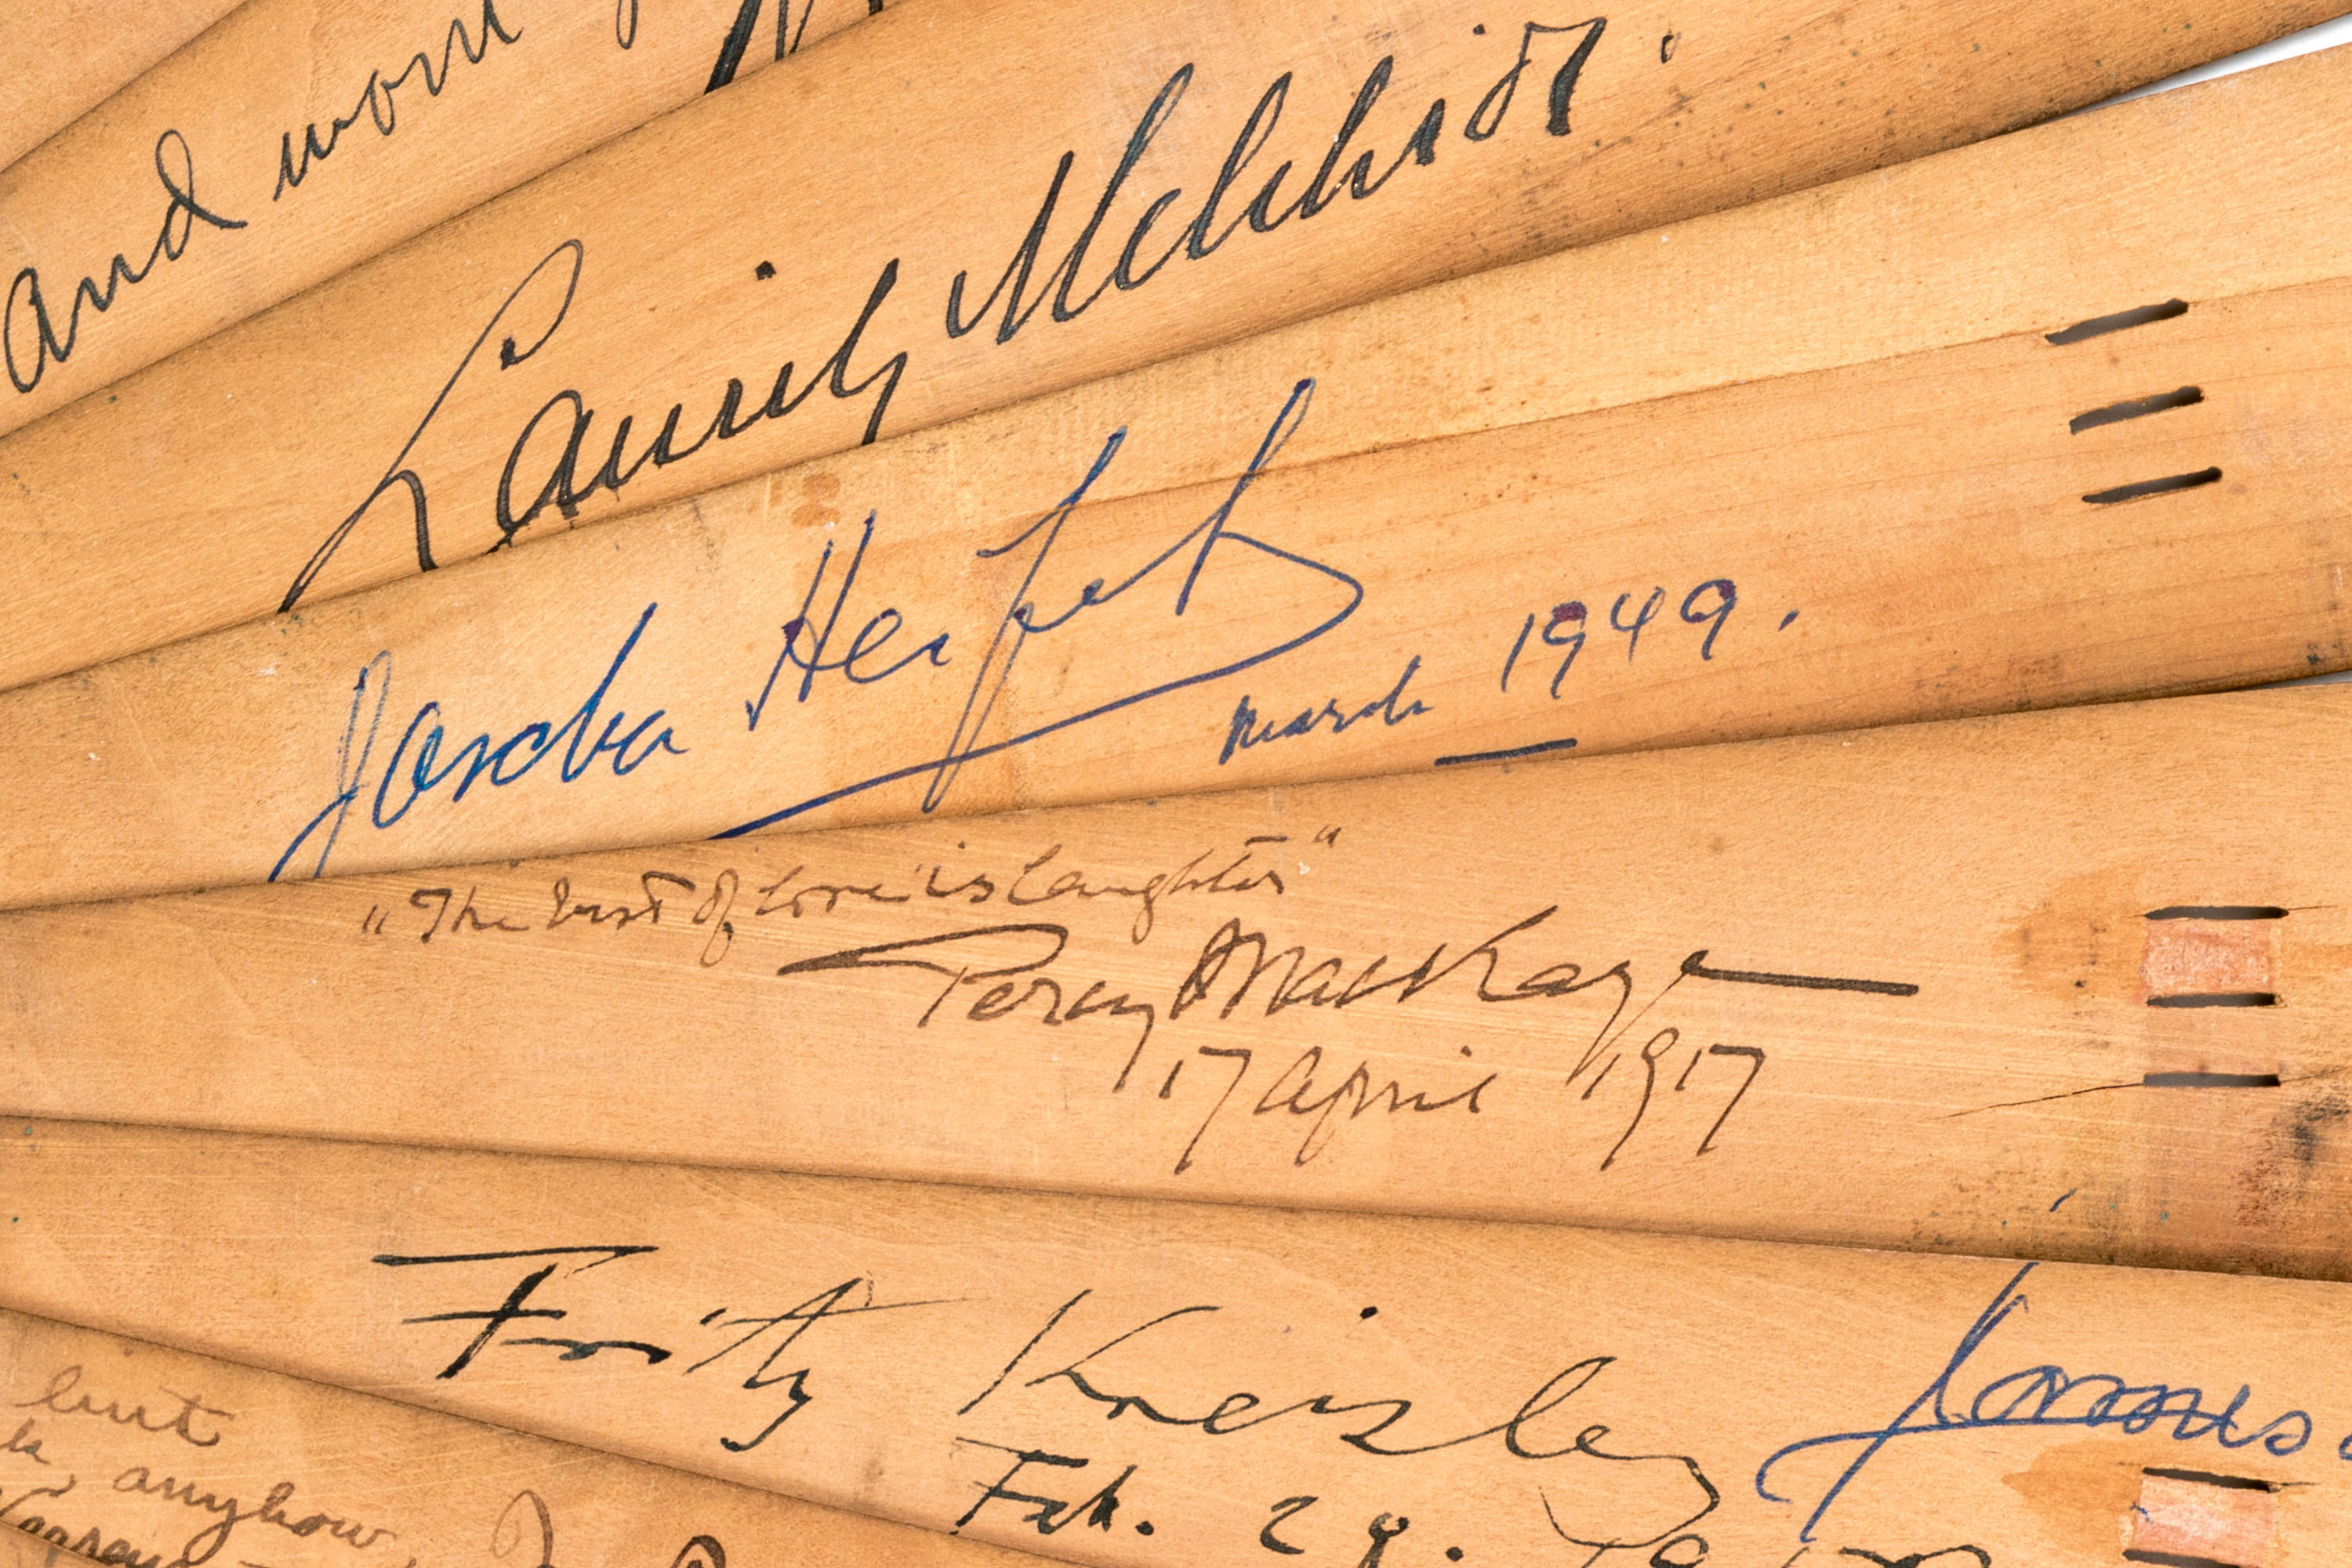 and
Lauritz Melchior.
Jascha Heifetz
March 1949.
"The best of Love is Laughter"
Percy MacKaye
17 April 1917
Fritz Kreisler
Feb. 28.
anyhow